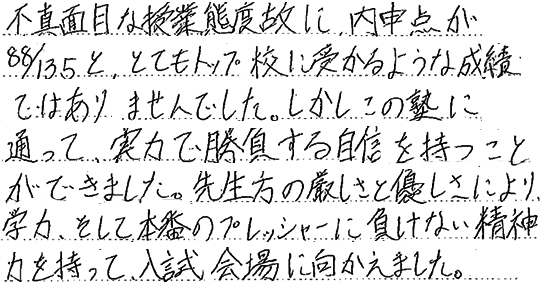 不真面目な授業態度故に、内申点が
88/135と、とてもトップ校に受かるような成績
ではありませんでした。しかしこの塾に
通って、実力で勝負する自信を持つこと
ができました。先生方の厳しさと優しさにより、
学力、そして本番のプレッシャーに負けない精神
力を持って、入試会場に向かえました。